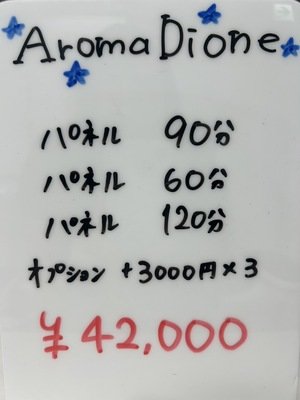 Aroma Dione
パネル 90分
パネル 60分
パネル 120分
オプション +3000円×3
¥42,000